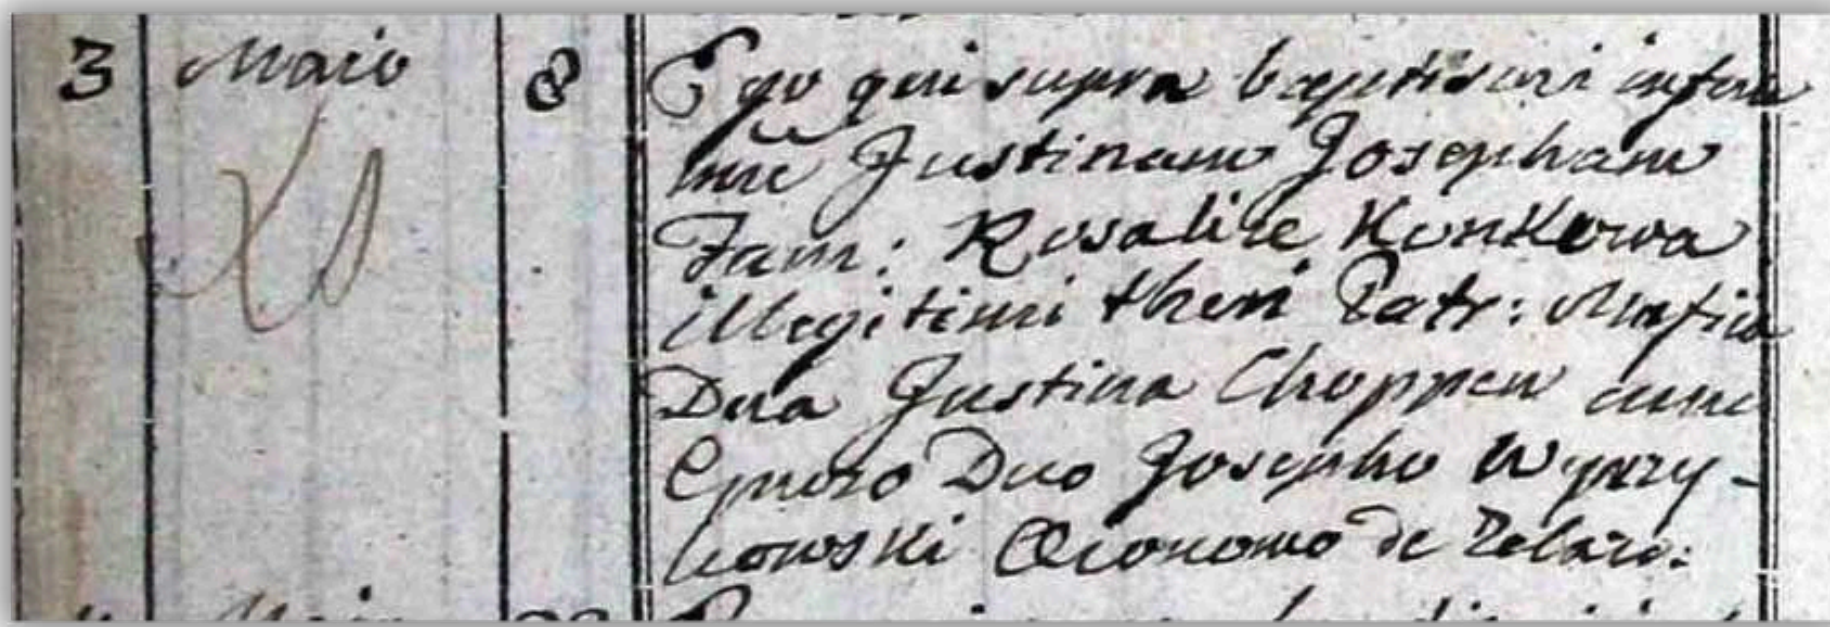 3 Maio 8 Ego qui supra baptisavi infan
mē Justinam Josepham
Fam: Rosaliæ Konkowa
illegitimi thori Patr: Mnfica
Dna Justina Choppen cum
Gnroso Dno Josepho Wyrzy-
kowski Œconomo de Zelazo: